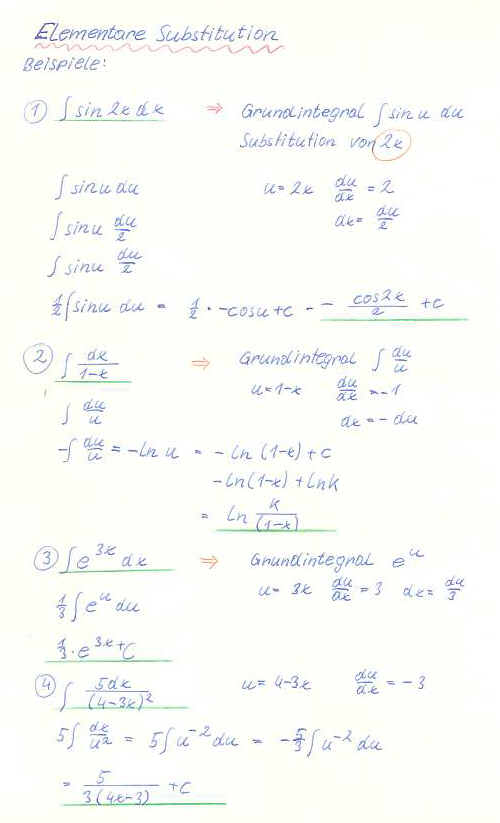 Elementare Substitution
Beispiele:
① ∫ sin 2x dx ⇒ Grundintegral ∫ sin u du
Substitution von 2x
∫ sin u du u = 2x du/dx = 2
∫ sin u du/2 dx = du/2
∫ sin u du/2
1/2 ∫ sin u du = 1/2 · -cos u + c = - cos2x/2 + c
② ∫ dx/1-x ⇒ Grundintegral ∫ du/u
u = 1-x du/dx = -1
∫ du/u dx = - du
-∫ du/u = -ln u = - ln (1-x) + c
-ln(1-x) + lnk
= ln k/(1-x)
③ ∫ e^3x dx ⇒ Grundintegral e^u
u = 3x du/dx = 3 dx = du/3
1/3 ∫ e^u du
1/3 · e^3x + C
④ ∫ 5dx/(4-3x)^2 u = 4-3x du/dx = -3
5∫ dx/u^2 = 5∫ u^-2 du = -5/3 ∫ u^-2 du
= 5/3(4x-3) + c